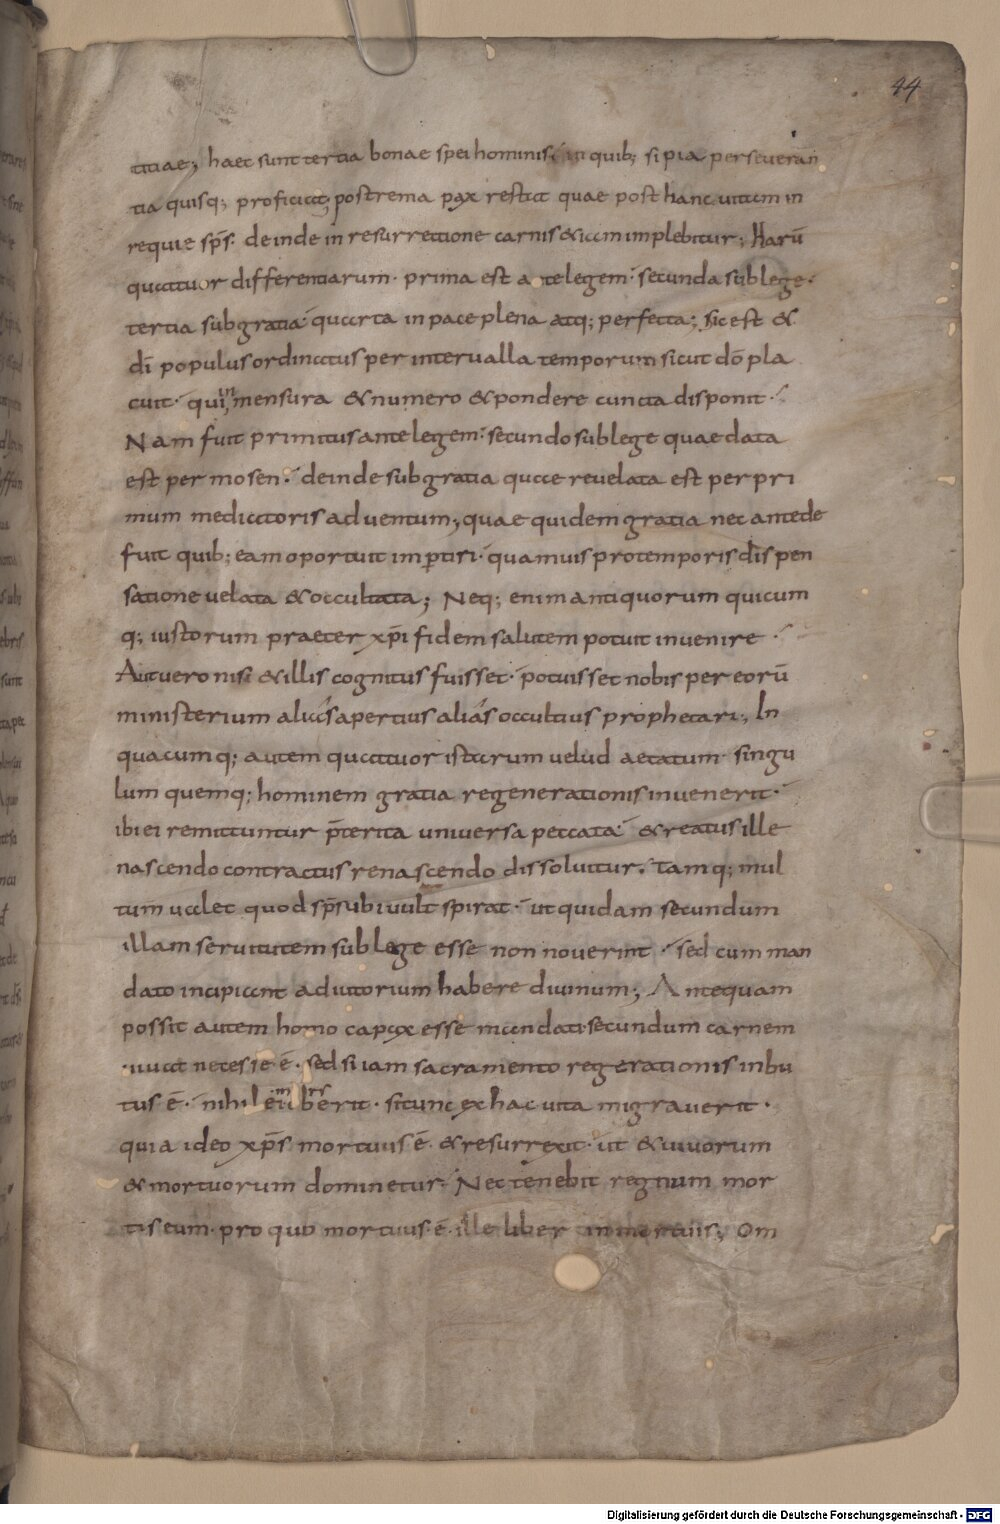 44
titiae; haec sunt tertia bonae spei hominis in quib; si pia perseveran
tia quisq; proficiat; postrema pax restat quae post hanc uitam in
requie sp̄s· deinde in resurrectione carnis & iam implebitur; Harū
quattuor differentiarum· prima est a te legem· secunda sub lege·
tertia sub gratia quarta in pace plena atq; perfecta; Sic est &
dī populus ordinatus per interualla temporum sicut dō pla
cuit· qui in mensura & numero & pondere cuncta disponit·
Nam fuit primitus ante legem· secundo sub lege quae data
est per mosen· deinde sub gratia quae reuelata est per pri
mum mediatoris aduentum; quae quidem gratia nec antede
fuit quib; eam oportuit impertiri· quamuis pro temporis dispen
satione uelata & occultata; Neq; enim antiquorum quicum
q; iustorum praeter xp̄i fidem salutem potuit inuenire·
Aut uero nisi & illis cognitus fuisset· potuisset nobis per eorū
ministerium alias apertius alias occultius prophetari; In
quacumq; autem quattuor istarum uelud aetatum· singu
lum quemq; hominem gratia regenerationis inuenerit·
ibi ei remittuntur p̄terita uniuersa peccata· & reatus ille
nascendo contractus renascendo dissoluitur· Tamq; mul
tum ualet quod sp̄s ubi uult spirat· ut quidam secundum
illam seruitutem sub lege esse non nouerint· sed cum man
dato incipiant adiutorium habere diuinum; Antequam
possit autem homo capax esse mandati· secundum carnem
uiuat necesse ē· sed si iam sacramento regerationis inbu
tus ē· nihil ei noberit· si tunc ex hac uita migrauerit·
quia ideo xp̄s mortuus ē· & resurrexit· ut & uiuorum
& mortuorum dominetur· Nec tenebit regnum mor
tis eum· pro quo mortuus ē· ille liber in mortuis; Om
Digitalisierung gefördert durch die Deutsche Forschungsgemeinschaft - DFG